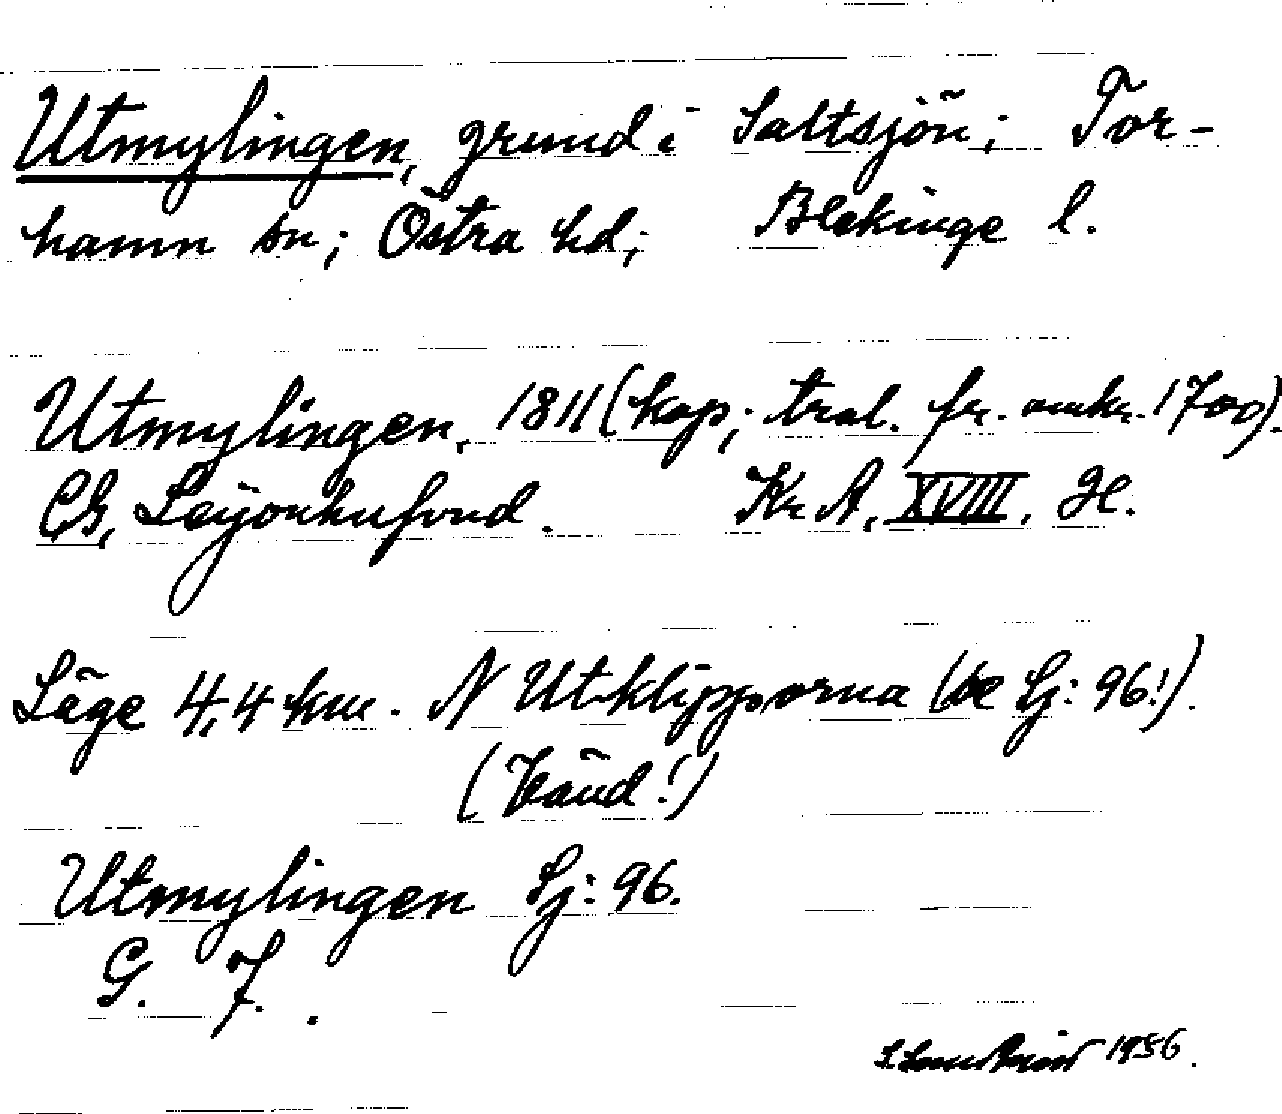 Utmylingen, grund i Saltsjön; Tor-
hamn sn; Östra hd; Blekinge l.
Utmylingen, 1811 (kop; tral. fr. omkr. 1700).
CG, Leijonhufvud. Kr A, XVIII, H.
Läge 4,4 km. N Utklipporna (se Sj: 96!).
(Vänd!)
Utmylingen Sj: 96.
G. F. .
1956.